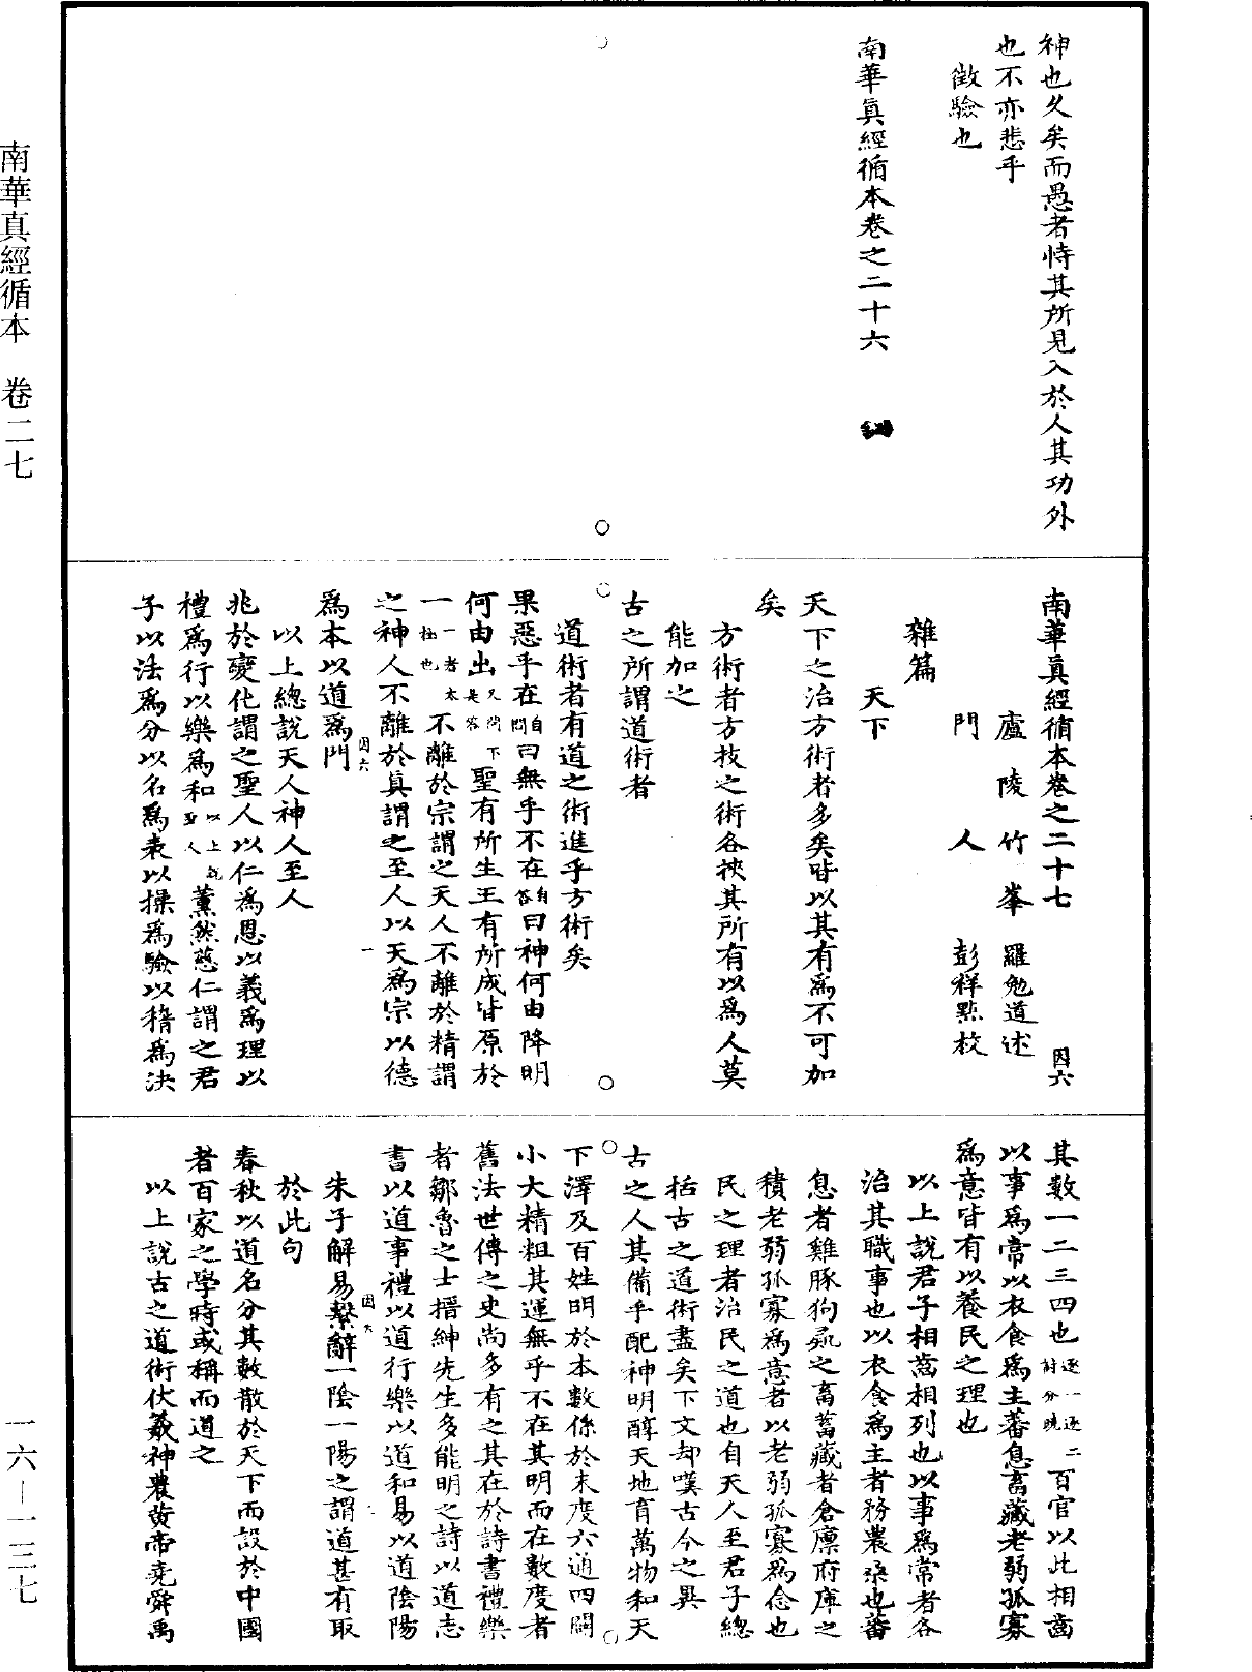 南華真經循本　卷二七
一六—一三七
神也久矣而愚者恃其所見入於人其功外
也不亦悲乎
徵驗也
南華眞經循本卷之二十六
南華眞經循本卷之二十七　因六
廬陵竹峯　羅勉道述
門人　彭祥點校
雜篇
天下
天下之治方術者多矣皆以其有爲不可加
矣
方術者方技之術各挾其所有以爲人莫
能加之
古之所謂道術者
道術者有道之術進乎方術矣
果惡乎在自問曰無乎不在自答曰神何由降明
何由出又問下是答聖有所生王有所成皆原於
一一者太極也不離於宗謂之天人不離於精謂
之神人不離於眞謂之至人以天爲宗以德
爲本以道爲門
因六　一
以上總說天人神人至人
兆於變化謂之聖人以仁爲恩以義爲理以
禮爲行以樂爲和以上說聖人薰然慈仁謂之君
子以法爲分以名爲表以操爲驗以稽爲決
其數一二三四也逐一逐二討分曉百官以此相齒
以事爲常以衣食爲主蕃息畜藏老弱孤寡
爲意皆有以養民之理也
以上說君子相齒相列也以事爲常者各
治其職事也以衣食爲主者務農桑也蕃
息者雞豚狗彘之畜蓄藏者倉廩府庫之
積老弱孤寡爲意者以老弱孤寡爲念也
民之理者治民之道也自天人至君子總
括古之道術盡矣下文却嘆古今之異
古之人其備乎配神明醇天地育萬物和天
下澤及百姓明於本數係於末度六通四闢
小大精粗其運無乎不在其明而在數度者
舊法世傳之史尚多有之其在於詩書禮樂
者鄒魯之士搢紳先生多能明之詩以道志
書以道事禮以道行樂以道和易以道陰陽
朱子解易繫辭一陰一陽之謂道甚有取
於此句
春秋以道名分其數散於天下而設於中國
者百家之學時或稱而道之
以上說古之道術伏羲神農黃帝堯舜禹